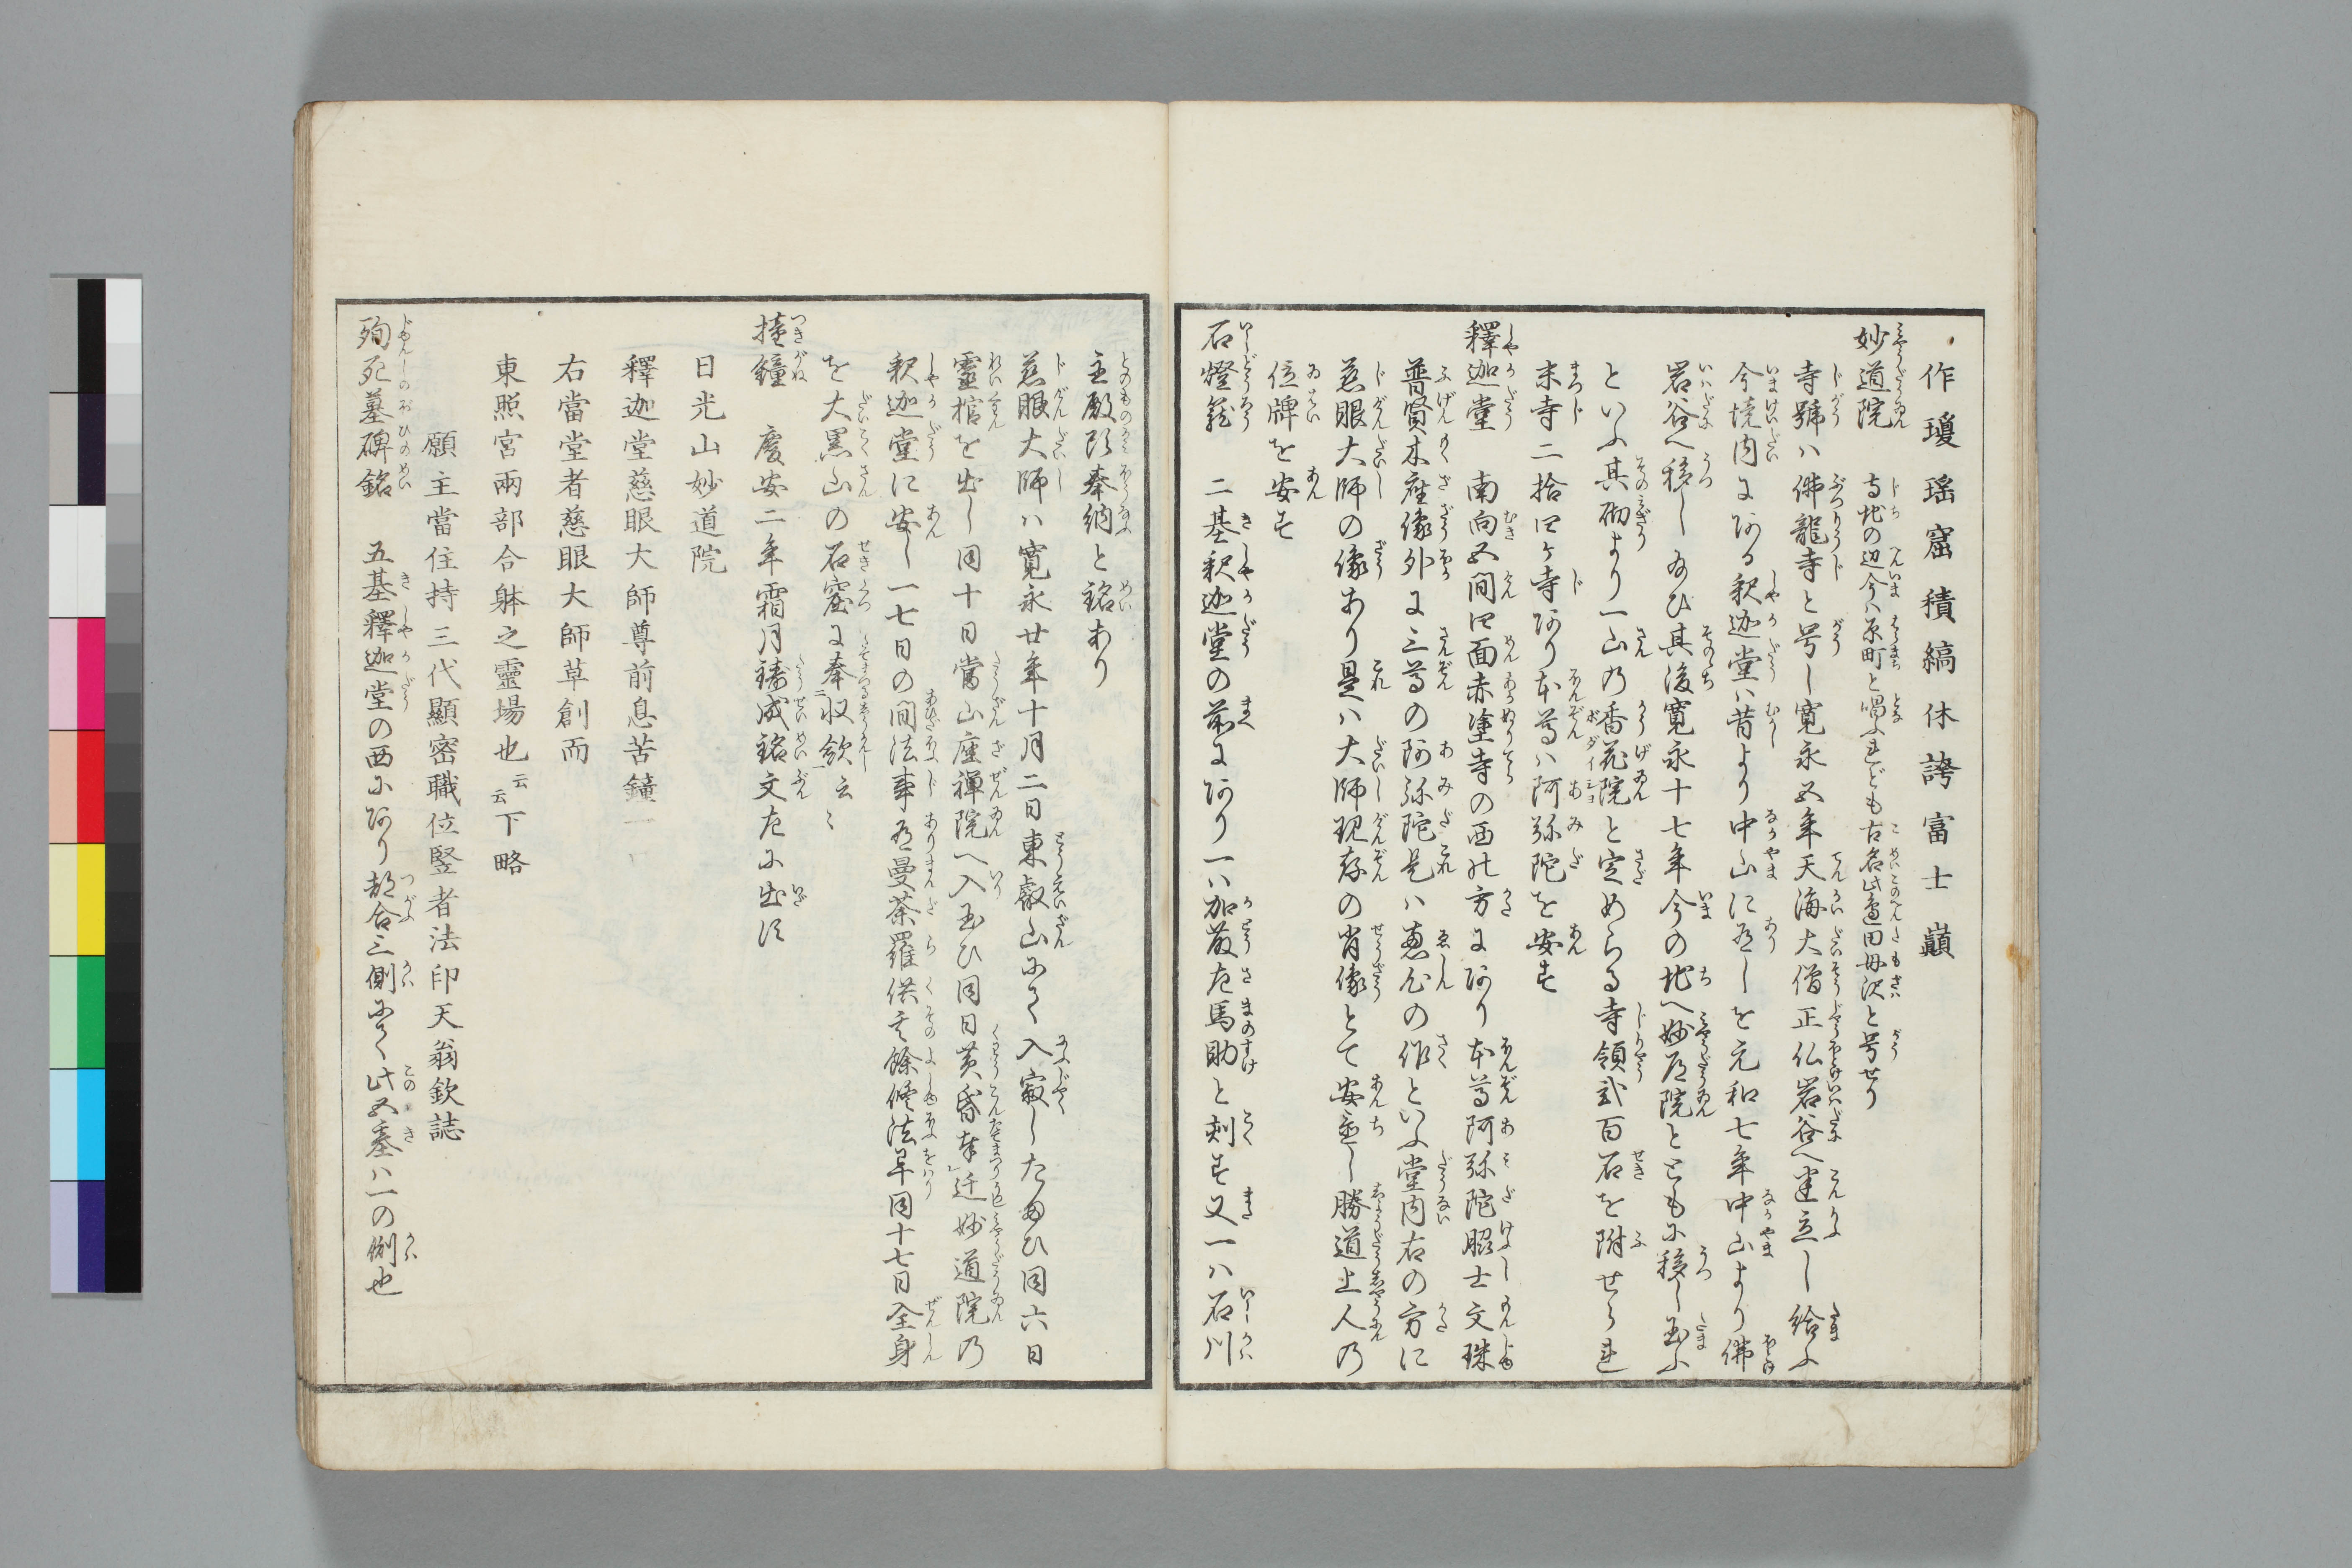 作瓊瑤窟積縞休誇富士巓
妙道院　寺地の辺今は原町と唱ふれども古名此邉田母沢と号せり
寺號ハ佛龍寺と号し寛永五年天海大僧正仏岩谷へ建立し給ふ
今境内にある釈迦堂ハ昔より中山に有しを元和七年中山より佛
岩谷へ移し給ひ其後寛永十七年今の地へ妙道院とともに移し玉ふ
といふ其砌より一山の香花院と定めらる寺領弐百石を附せられ
末寺二拾四ケ寺あり本尊ハ阿弥陀を安す
釋迦堂　南向五間四面赤塗寺の西の方にあり本尊阿弥陀脇士文珠
普賢木座像外に三尊の阿弥陀是ハ恵心の作といふ堂内右の方に
慈眼大師の像あり是ハ大師現存の肖像とて安置し勝道上人の
位牌を安す
石燈籠　二基釈迦堂の前にあり一ハ加藤左馬助と刻す又一ハ石川
主殿頭奉納と銘あり
慈眼大師ハ寛永廿年十月二日東叡山にて入寂したまひ同六日
靈棺を出し同十日當山座禅院へ入玉ひ同日黄昏奉迁妙道院の
釈迦堂に安し一七日の間法事有曼荼羅供其餘修法畢同十七日全身
を大黒山の石窟に奉収歛云々
撞鐘　慶安二年霜月鋳成銘文左に出す
日光山妙道院
釋迦堂慈眼大師尊前息苦鐘一
右當堂者慈眼大師草創而
東照宮兩部合躰之靈場也云云下略
願主當住持三代顯密職位竪者法印天翁欽誌
殉死墓碑銘　五基釋迦堂の西にあり都合三側にて此五基ハ一の側也